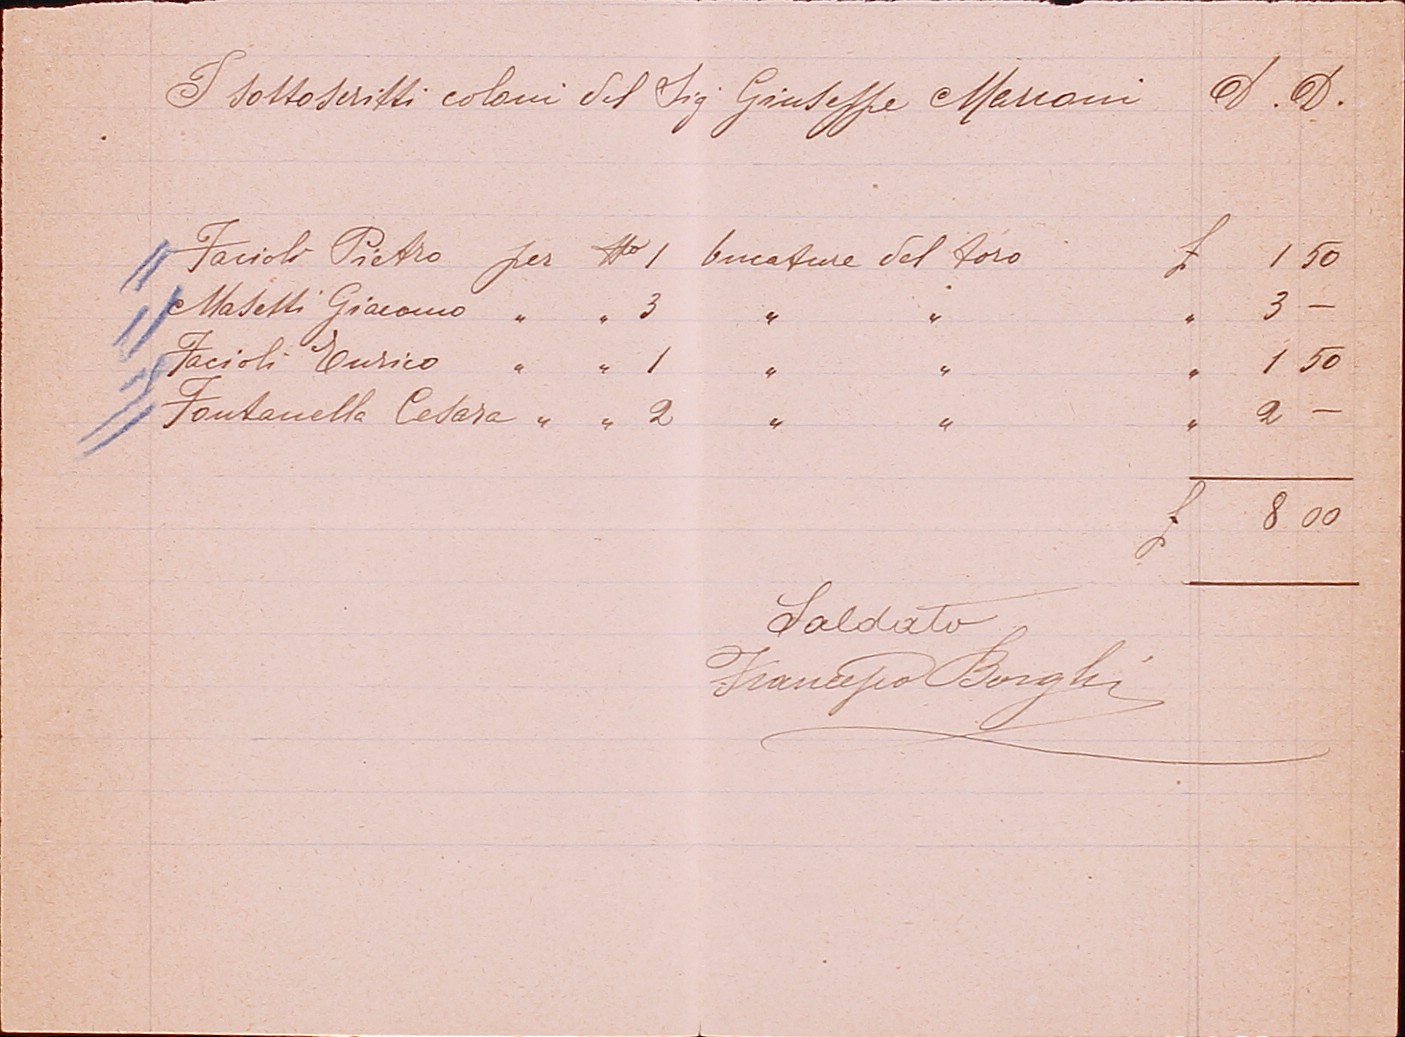 I sottoscritti coloni del Sig Giuseppe Marconi D. D.
Facioli Pietro per No 1 bucature del toro £ 1 50
Masetti Giacomo " " 3 " " " 3 —
Facioli Enrico " " 1 " " " 1 50
Fontanella Cesara " " 2 " " " 2 —
£ 8 00
Saldato
Francesco Borghi